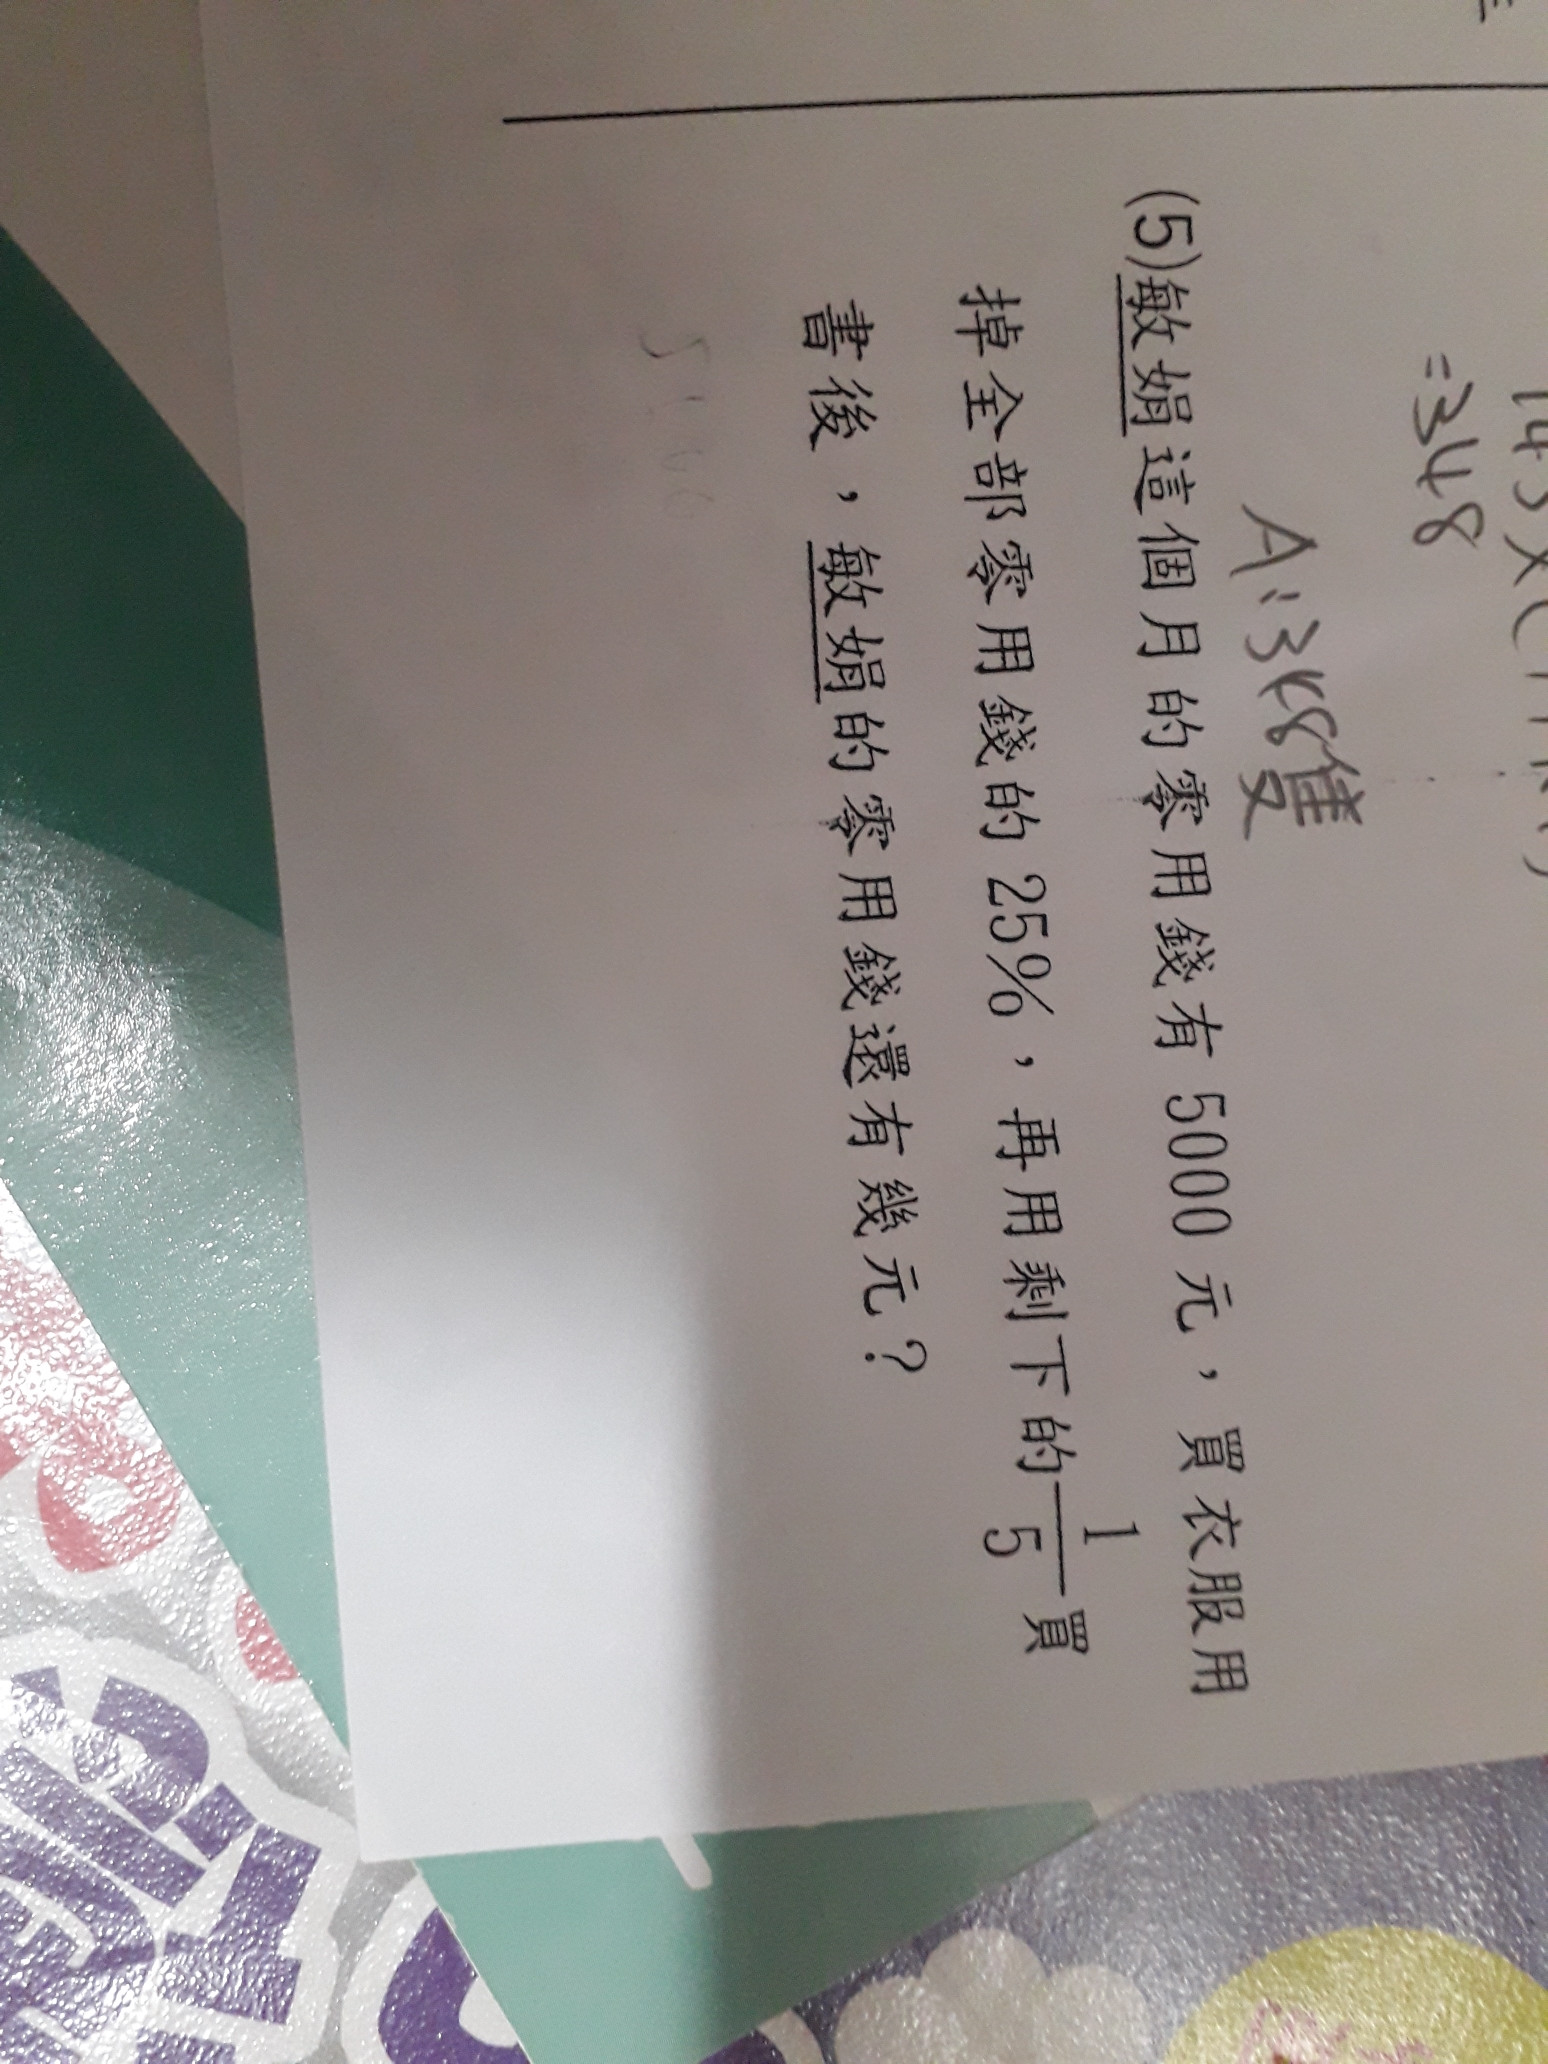 =348
A:348隻
(5)敏娟這個月的零用錢有 5000 元，買衣服用
掉全部零用錢的 25%，再用剩下的 1/5 買
書後，敏娟的零用錢還有幾元？